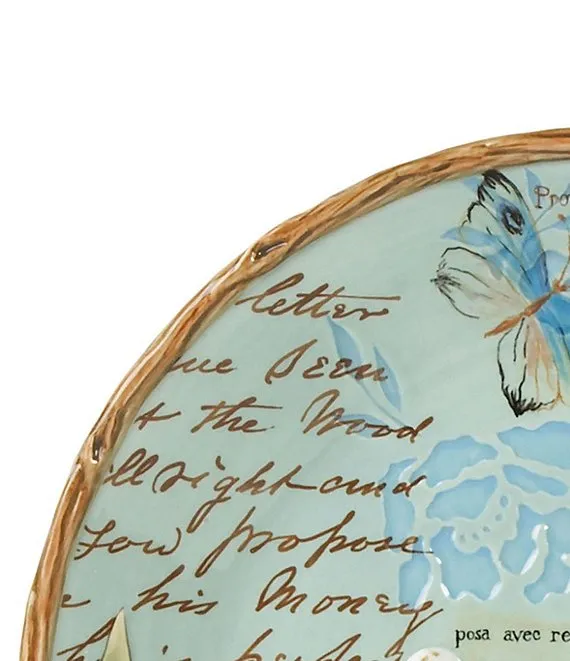 Pro
letter
ue Seen
t the Wood
ll right and
you propose
his Money
posa avec re